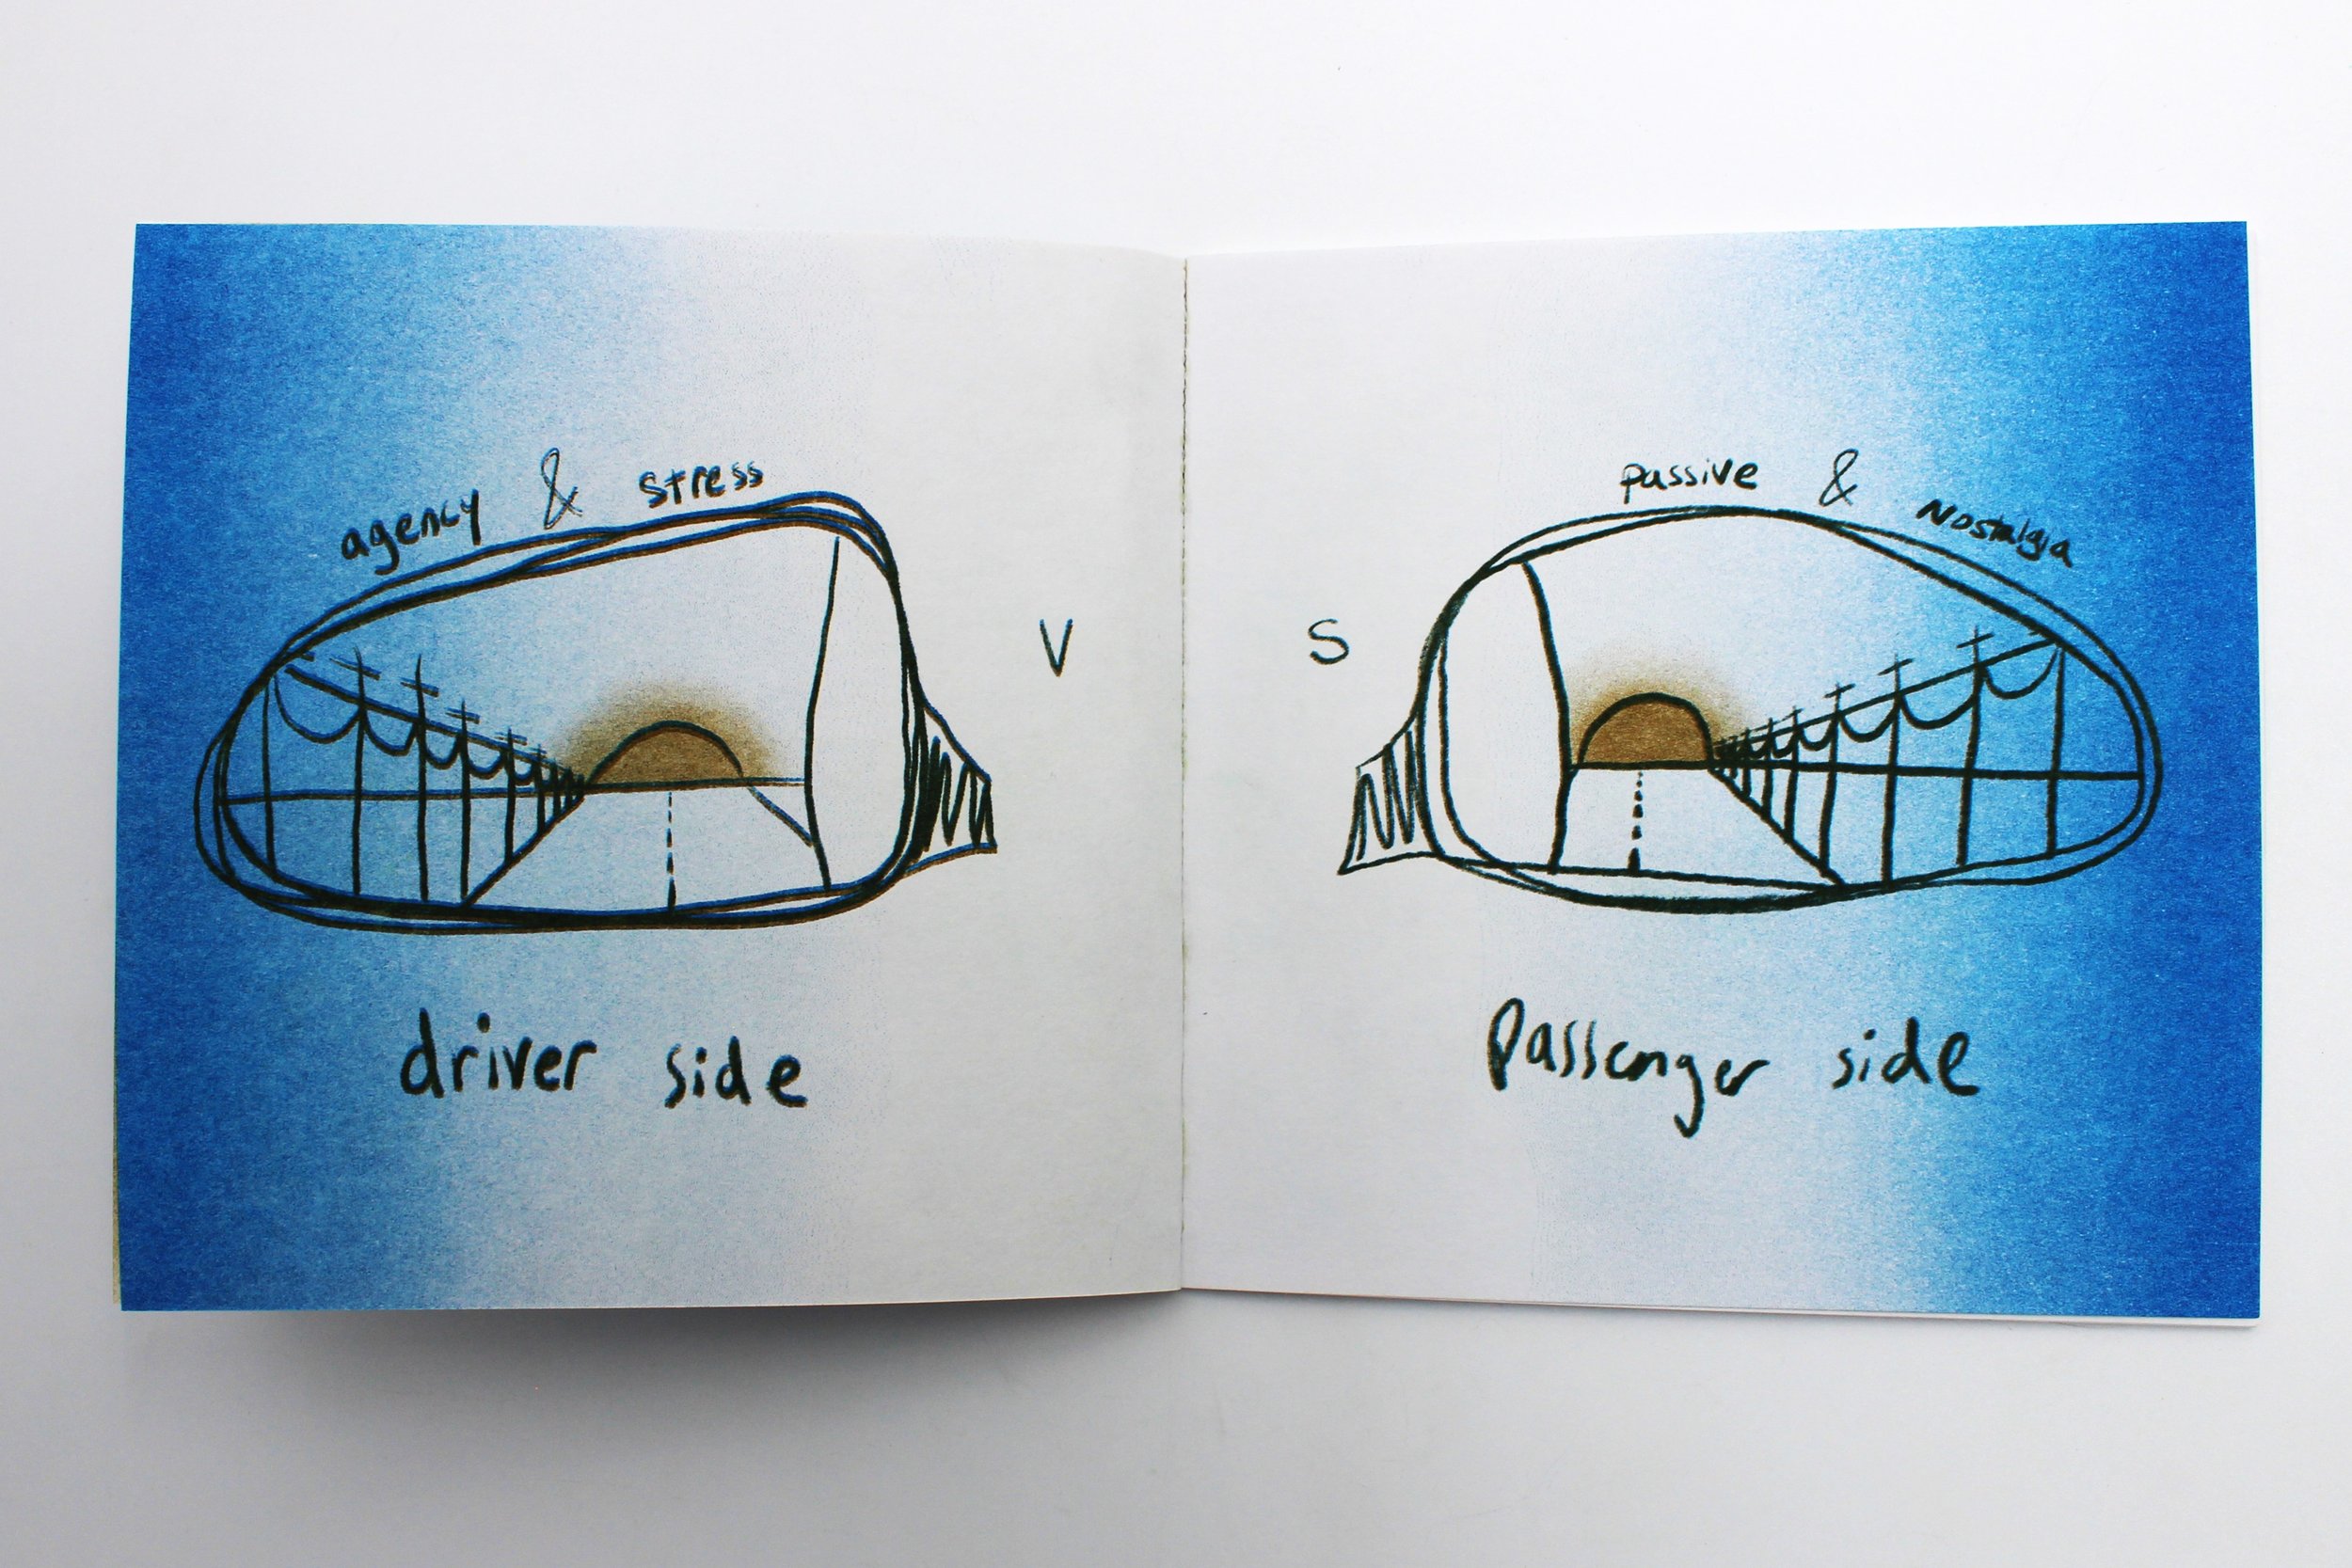 agency & stress
V
driver side
passive & Nostalgia
S
Passenger side